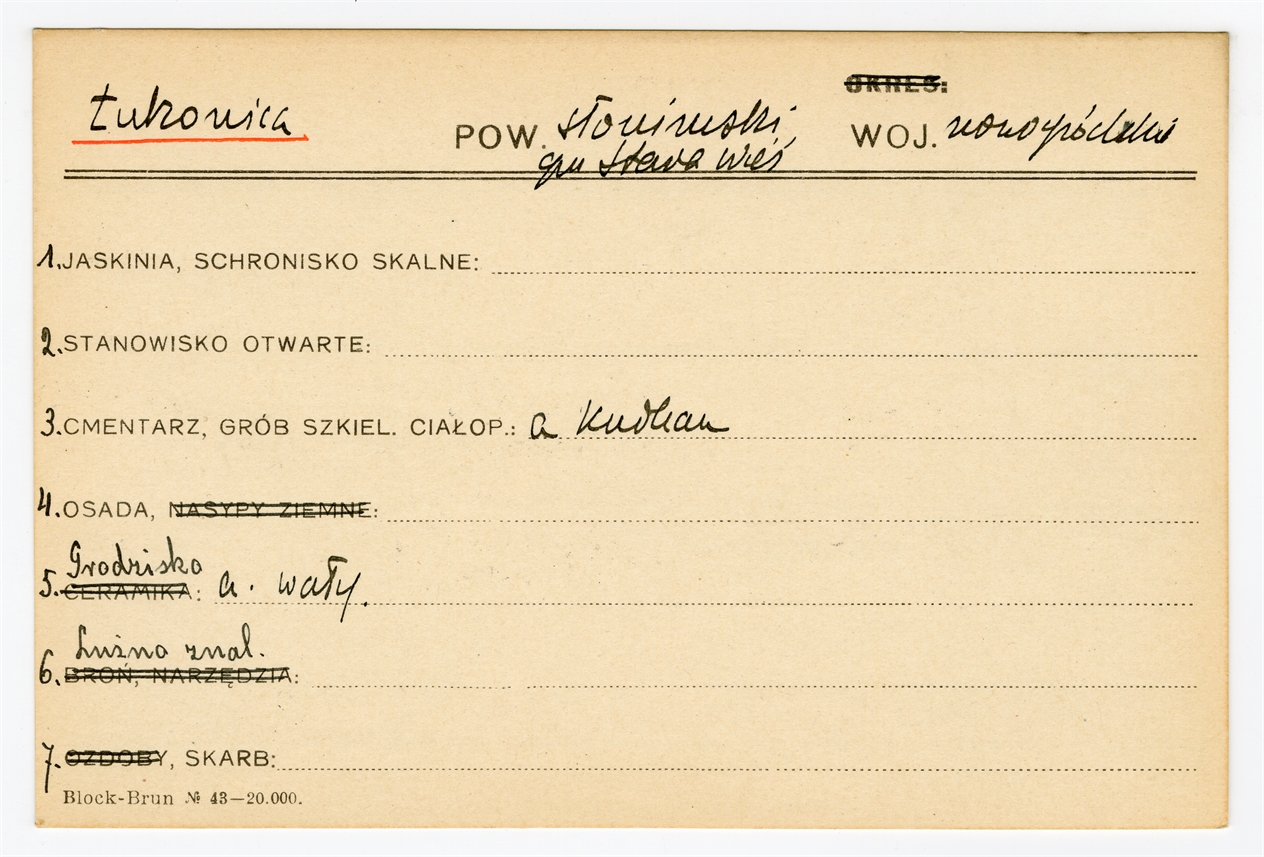 OKRES:
Łukonica POW. słonimski, WOJ. nowogródzki
gm Stara Wieś
1. JASKINIA, SCHRONISKO SKALNE:
2. STANOWISKO OTWARTE:
3. CMENTARZ, GRÓB SZKIEL. CIAŁOP.: a
4. OSADA, NASYPY ZIEMNE:
Grodzisko
5. CERAMIKA: a. wały.
Luźno znal.
6. BROŃ, NARZĘDZIA:
7. OZDOBY, SKARB:
Block-Brun № 43—20.000.